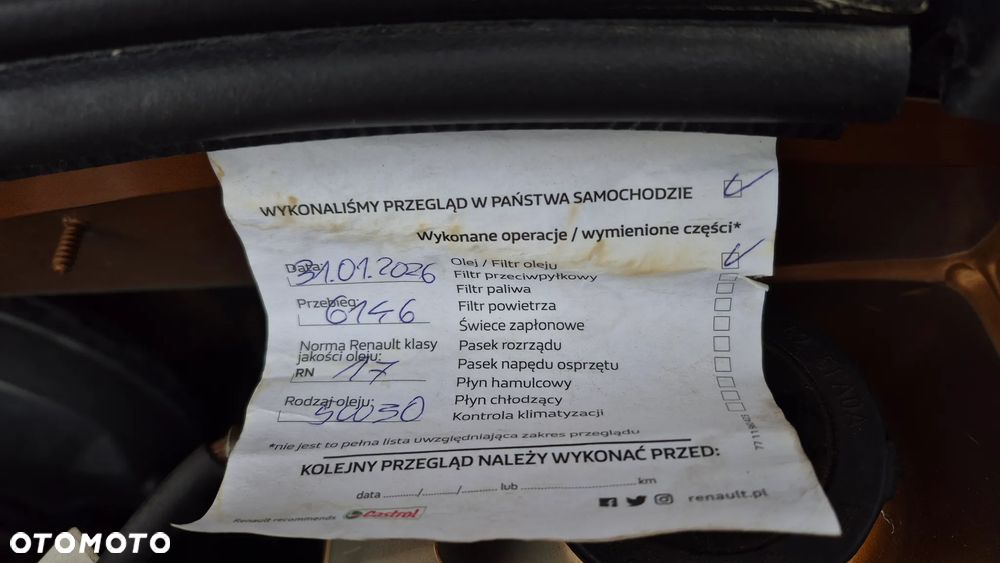 WYKONALIŚMY PRZEGLĄD W PAŃSTWA SAMOCHODZIE
Wykonane operacje / wymienione części*
Data: 31.01.2026
Przebieg: 6146
Norma Renault klasy
jakości oleju:
RN 17
Rodzaj oleju: 50030
Olej / Filtr oleju
Filtr przeciwpyłkowy
Filtr paliwa
Filtr powietrza
Świece zapłonowe
Pasek rozrządu
Pasek napędu osprzętu
Płyn hamulcowy
Płyn chłodzący
Kontrola klimatyzacji
*nie jest to pełna lista uwzględniająca zakres przeglądu
KOLEJNY PRZEGLĄD NALEŻY WYKONAĆ PRZED:
data ........../........../.......... lub .............................. km
renault.pl
Renault recommends Castrol
OTOMOTO